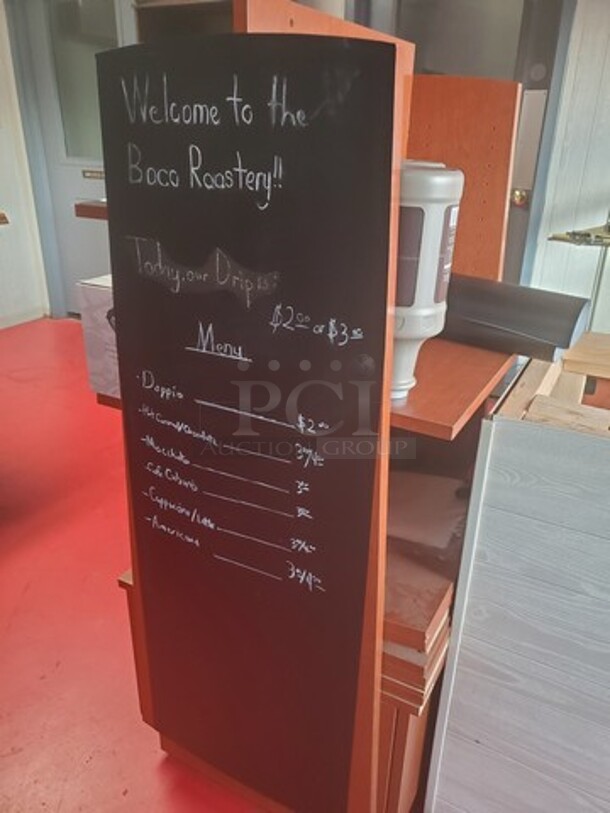 Welcome to the
Boco Roastery!!
Today, our Drip is:
$2.00 or $3.00
Menu
- Doppio $2.00
- Hot Caramel/Chocolate
- Macchiato
- Cafe Cubano
- Cappuccino/Latte
- Americano
PCI
AUCTION GROUP